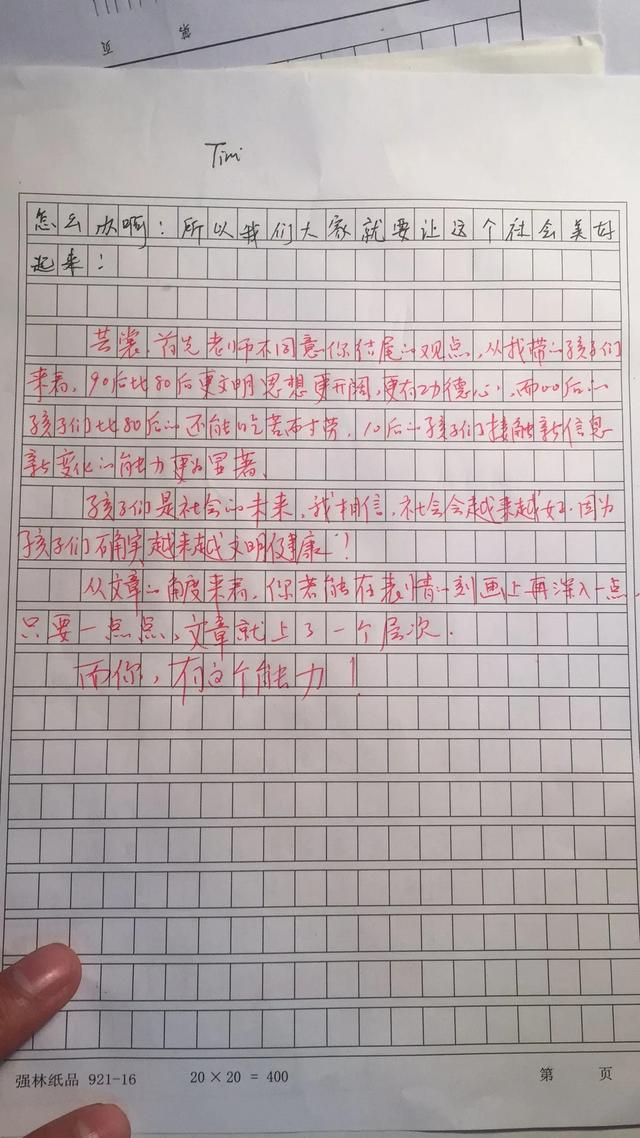 第 页
Timi
怎么办啊!所以我们大家就要让这个社会美好
起来!
芸裳,首先老师不同意你结尾的观点,从我带的孩子们
来看,90后比80后更文明思想更开阔,更有功德心,而00后的
孩子们比80后的还能吃苦而才劳,10后的孩子们接触新信息
新变化的能力更为显著。
孩子们是社会的未来,我相信,社会会越来越好,因为
孩子们确实越来越文明健康!
从文章的角度来看,你若能在表情的刻画上再深入一点,
只要一点点,文章就上了一个层次.
而你,有这个能力!
强林纸品 921-16 20×20=400 第 页